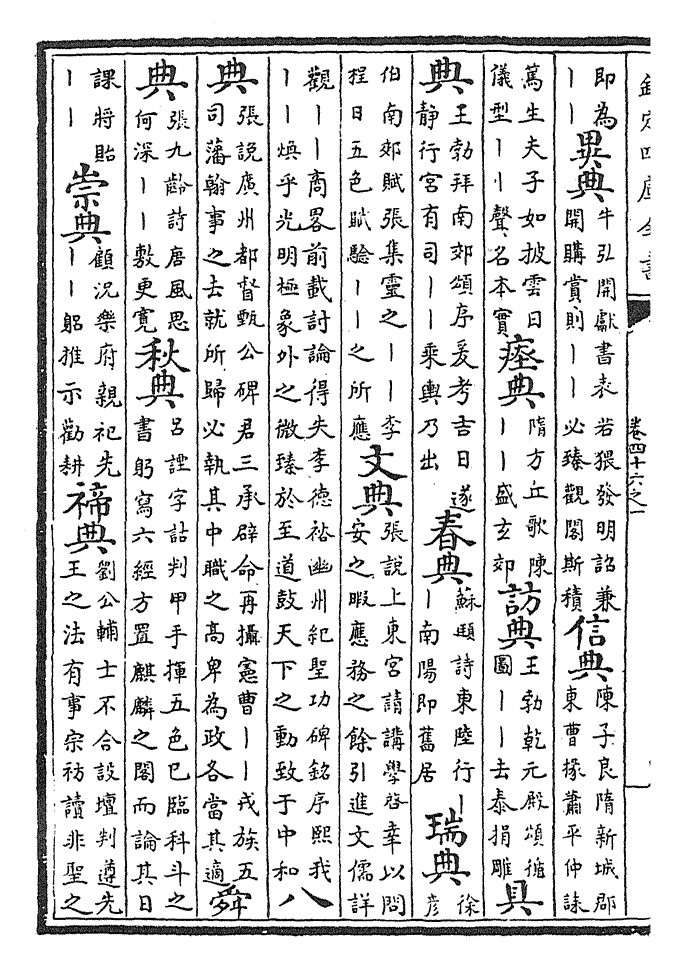 欽定四庫全書
卷四十六之一
即為丨丨異典牛弘開獻書表若猥發明詔兼開購賞則丨丨必臻觀閣斯積信典陳子良隋新城郡東曹掾蕭平仲誄
篤生夫子如披雲日儀型丨丨聲名本實瘞典隋方丘歌陳丨丨盛玄郊訪典王勃乾元殿頌循圖丨丨去泰捐雕具
典王勃拜南郊頌序爰考吉日遂靜行宮有司丨丨乘輿乃出春典蘇頲詩東陸行丨丨南陽即舊居瑞典徐彦
伯南郊賦張集靈之丨丨李程日五色賦驗丨丨之所應文典張說上東宮請講學啓幸以問安之暇應務之餘引進文儒詳
觀丨丨商畧前載討論得失李德裕幽州紀聖功碑銘序熙我丨丨煥乎光明極象外之微臻於至道鼓天下之動致于中和八
典張說廣州都督甄公碑君三承辟命再攝憲曹丨丨戎族五司藩翰事之去就所歸必執其中職之高卑為政各當其適舜
典張九齡詩唐風思何深丨丨敷更寛秋典呂諲字詁判甲手揮五色已臨科斗之書躬寫六經方置麒麟之閣而論其日
課將貽丨丨崇典顧況樂府親祀先丨丨躬推示勸耕禘典劉公輔士不合設壇判遵先王之法有事宗祊讀非聖之